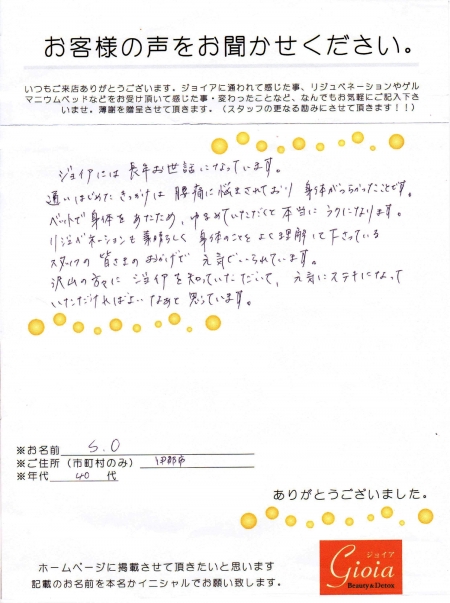 お客様の声をお聞かせください。
いつもご来店ありがとうございます。ジョイアに通われて感じた事、リジュベネーションやゲル
マニウムベッドなどをお受け頂いて感じた事・変わったことなど、なんでもお気軽にご記入下さ
いませ。薄謝を贈呈させて頂きます。（スタッフの更なる励みにさせて頂きます！！）
ジョイアには長年お世話になっています。
通いはじめたきっかけは腰痛に悩まされており身体がつらかったことです。
ベットで身体をあたため、ゆるめていただくと本当にラクになります。
リジュベネーションも素晴らしく身体のことをよく理解して下さっている
スタッフの皆さまのおかげで元気でいられています。
沢山の方々にジョイアを知っていただいて、元気にステキになって
いただければよいなあと思っています。
※お名前 S.O
※ご住所（市町村のみ） 伊那市
※年代 40 代
ありがとうございました。
ホームページに掲載させて頂きたいと思います
記載のお名前を本名かイニシャルでお願い致します。
ジョイア
Gioia
Beauty&Detox